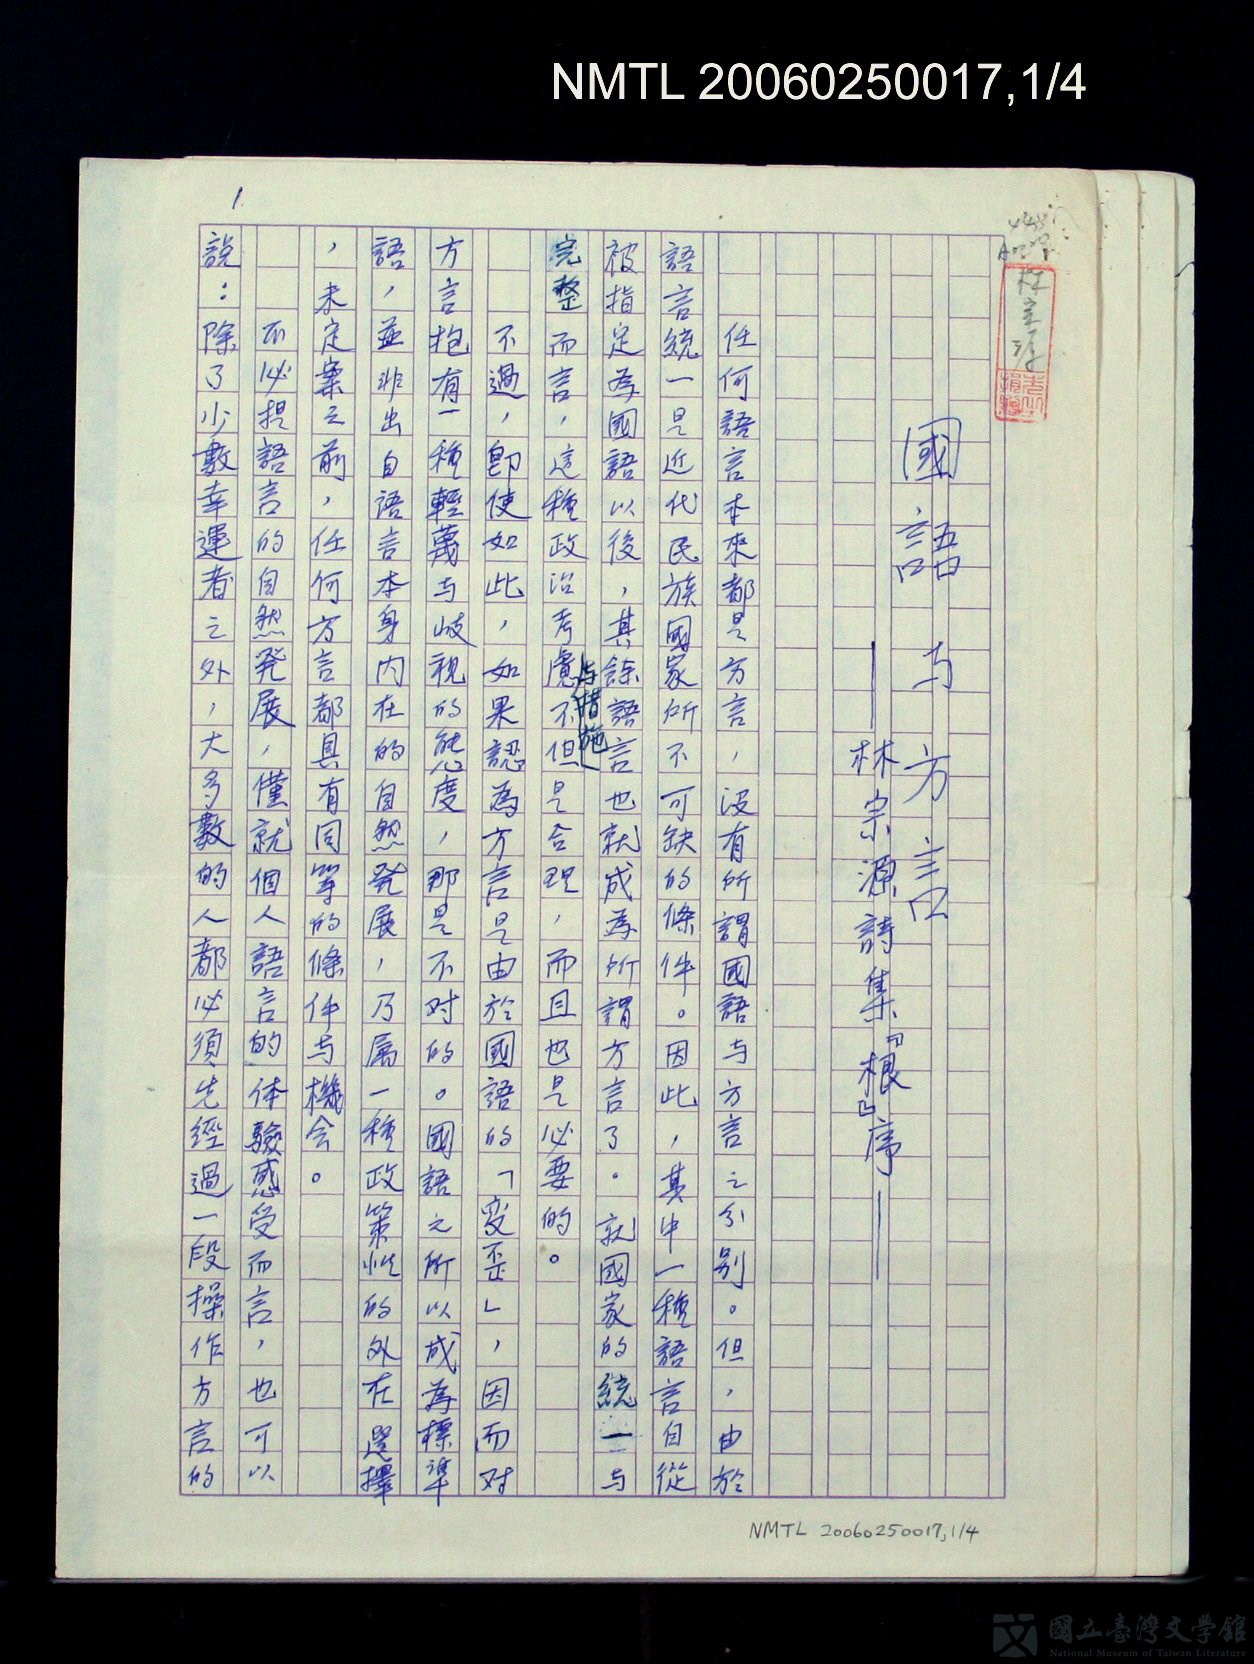 NMTL 20060250017,1/4
1.
國語与方言
——林宗源詩集『根』序——
任何語言本來都是方言，沒有所謂國語与方言之分別。但，由於
語言統一是近代民族國家所不可缺的條件。因此，其中一種語言自從
被指定為國語以後，其餘語言也就成為所謂方言了。就國家的統一与
完整而言，這種政治考慮与措施不但是合理，而且也是必要的。
不過，即使如此，如果認為方言是由於國語的「変歪」，因而对
方言抱有一種輕蔑与歧視的態度，那是不对的。國語之所以成為標準
語，並非出自語言本身內在的自然発展，乃属一種政策性的外在選擇
，未定案之前，任何方言都具有同等的條件与機会。
不必提語言的自然発展，僅就個人語言的体驗感受而言，也可以
說：除了少數幸運者之外，大多數的人都必須先經過一段操作方言的
NMTL 20060250017,1/4
國立臺灣文學館
National Museum of Taiwan Literature